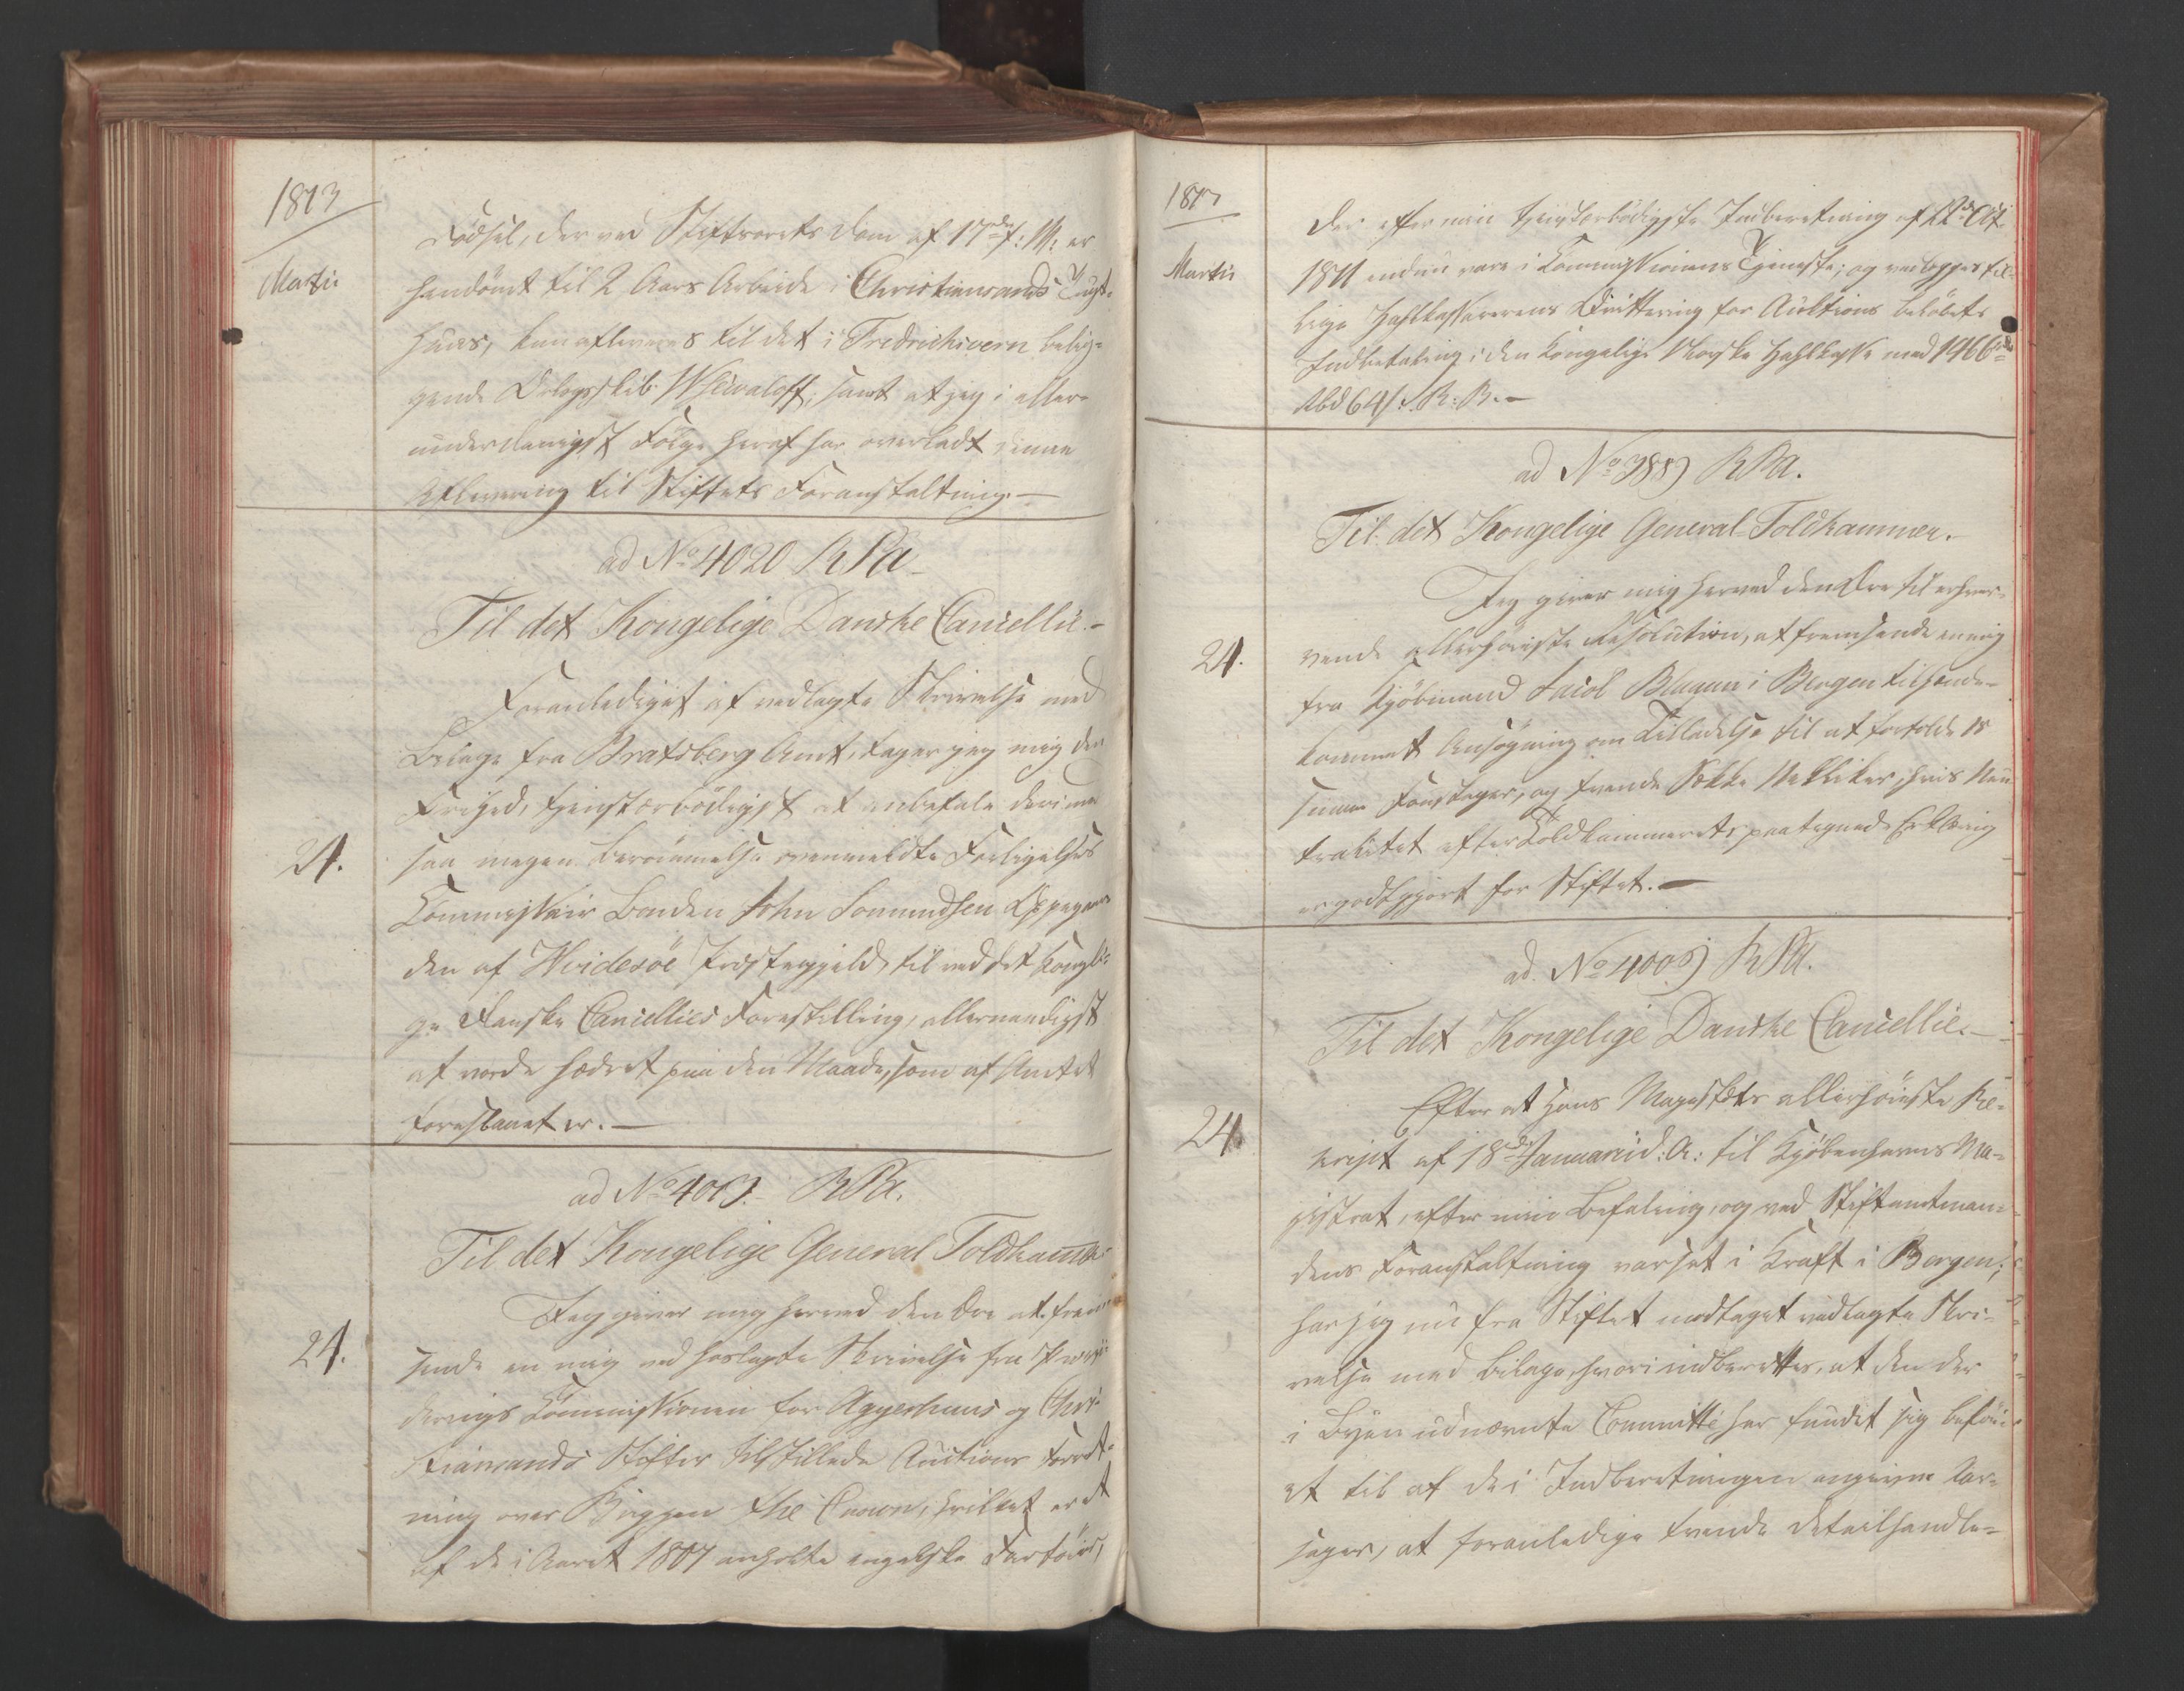 1813
Martii
Födsel, der ved Stiftsrets Dom af 17de f: M: er
hendömt til 2 Aars Arbeide i Christiansands Tugt-
huus, kan afleveres til det i Fredrichsvern belig-
gende Orlogsskib Wsewaloff; samt at jeg i aller-
underdanigst Følge heraf har overladt denne
Aflevering til Stiftets Foranstaltning.—
ad No 4020 RPa
Til det Kongelige Danske Cancellie.-
24.
Foranlediget af vedlagte Skrivelse med
Bilage fra Bratsberg Amt, tager jeg mig den
Frihed, tjenstærbödigst at anbefale den med
saa megen Berömmelse ovenmeldte Forligelses
Commissair Bonden John Somundsen
den af Hvidesöe Præstegjeld til ved det Kongeli-
ge Danske Cancellies Forestilling, allernaadigst
at vorde hædret paa den Maade, som af Amtet
foreslaaet er.—
ad No RPa.
Til det Kongelige General Toldkammer
24.
Jeg giver mig herved den Ære at frem-
sende en mig ved hoslagte Skrivelse fra
Commissionen for Aggerhuus og Chri-
stiansands Stifter tilstillede Auctions Forret-
ning over Briggen the Canon, hvilket er et
af de i Aaret 1807 anholte engelske Fartöier,
1813
Martii
der efter min tjenstærbödigste Indberetning af
1811 endnu vare i Commissionens Tjeneste; og vedlægges til-
lige Zahlkassererens Qvittering for Auctions Belöbets
Indbetaling i den Kongelige Norske Zahlkasse med 1466
Rbd 64 s. R: B.—
ad No RPa.
Til det Kongelige General-Toldkammer.
24.
Jeg giver mig herved den Ære til erhver-
vende allerhöieste Resolution, at fremsende en mig
fra Kjöbmand Jacob i Bergen tilhænde-
kommet Ansögning om Tilladelse til at fortolde 15
smaa Foustager, og tvende Sække Nelliker, hvis Neu
tralitet efter Toldkammerets paategnede Erklæring
er godtgjort for Stiftet.—
ad. No RPa.
Til det Kongelige Danske Cancellie.—
24
Efter at Hans Majestæts allerhöieste Re-
script af 18de Januarii d: A: til Kjöbenhavns Ma-
gistrat, efter min Befaling, og ved Stiftamtman-
dens Foranstaltning var sat i Kraft i Bergen;
har jeg nu fra Stiftet modtaget vedlagte Skri-
velse med Bilage, hvori indberettes, at den der
i Byen udnævnte Committé har fundet sig beföi-
et til af de i Indberetningen angivne Aar-
sager, at foranledige tvende Detailhandle-